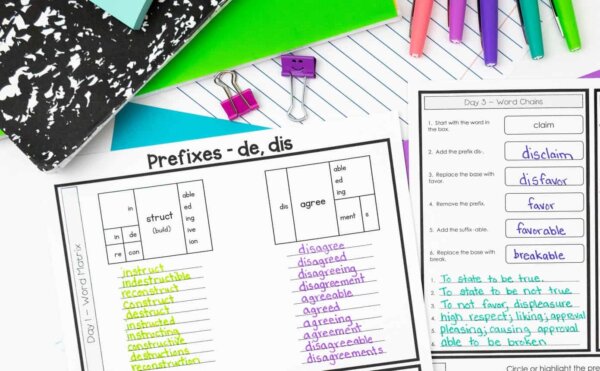 Prefixes - de, dis
Day 1 – Word Matrix
in
in
de
re
con
struct
(build)
able
ed
ing
ive
ion
dis
agree
able
ed
ing
ment
s
instruct
indestructible
reconstruct
construct
destruct
instructed
instructing
constructive
destructions
reconstruction
disagree
disagreed
disagreeing
disagreement
agreeable
agreed
agreeing
agreement
disagreeable
disagreements
Day 3 – Word Chains
1. Start with the word in the box.
claim
2. Add the prefix dis-.
disclaim
3. Replace the base with favor.
disfavor
4. Remove the prefix.
favor
5. Add the suffix -able.
favorable
6. Replace the base with break.
breakable
1. To state to be true.
2. To state to be not true
3. To not favor, displeasure
4. high respect; liking; approval
5. pleasing; causing approval
6. able to be broken
Circle or highlight the pre